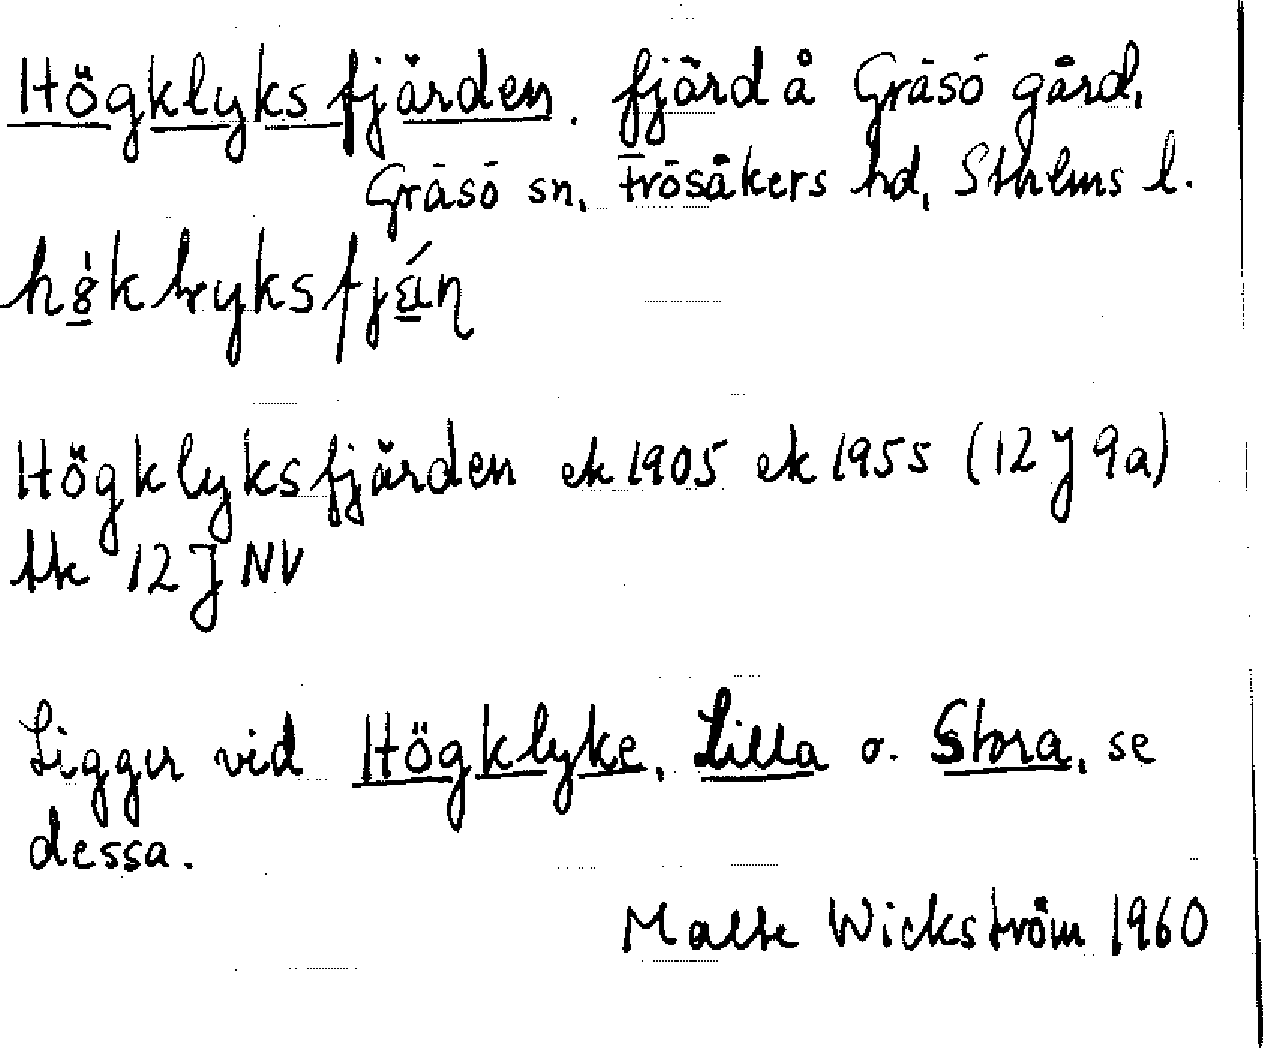 Högklyksfjärden. fjärd å Gräsö gård,
Gräsö sn, Frösåkers hd, Sthlms l.
Högklyksfjärden ek 1905 ek 1955 (12 J 9a)
tk 12 J NV
Ligger vid Högklyke, Lilla o. Stora, se
dessa.
Malte Wickström 1960